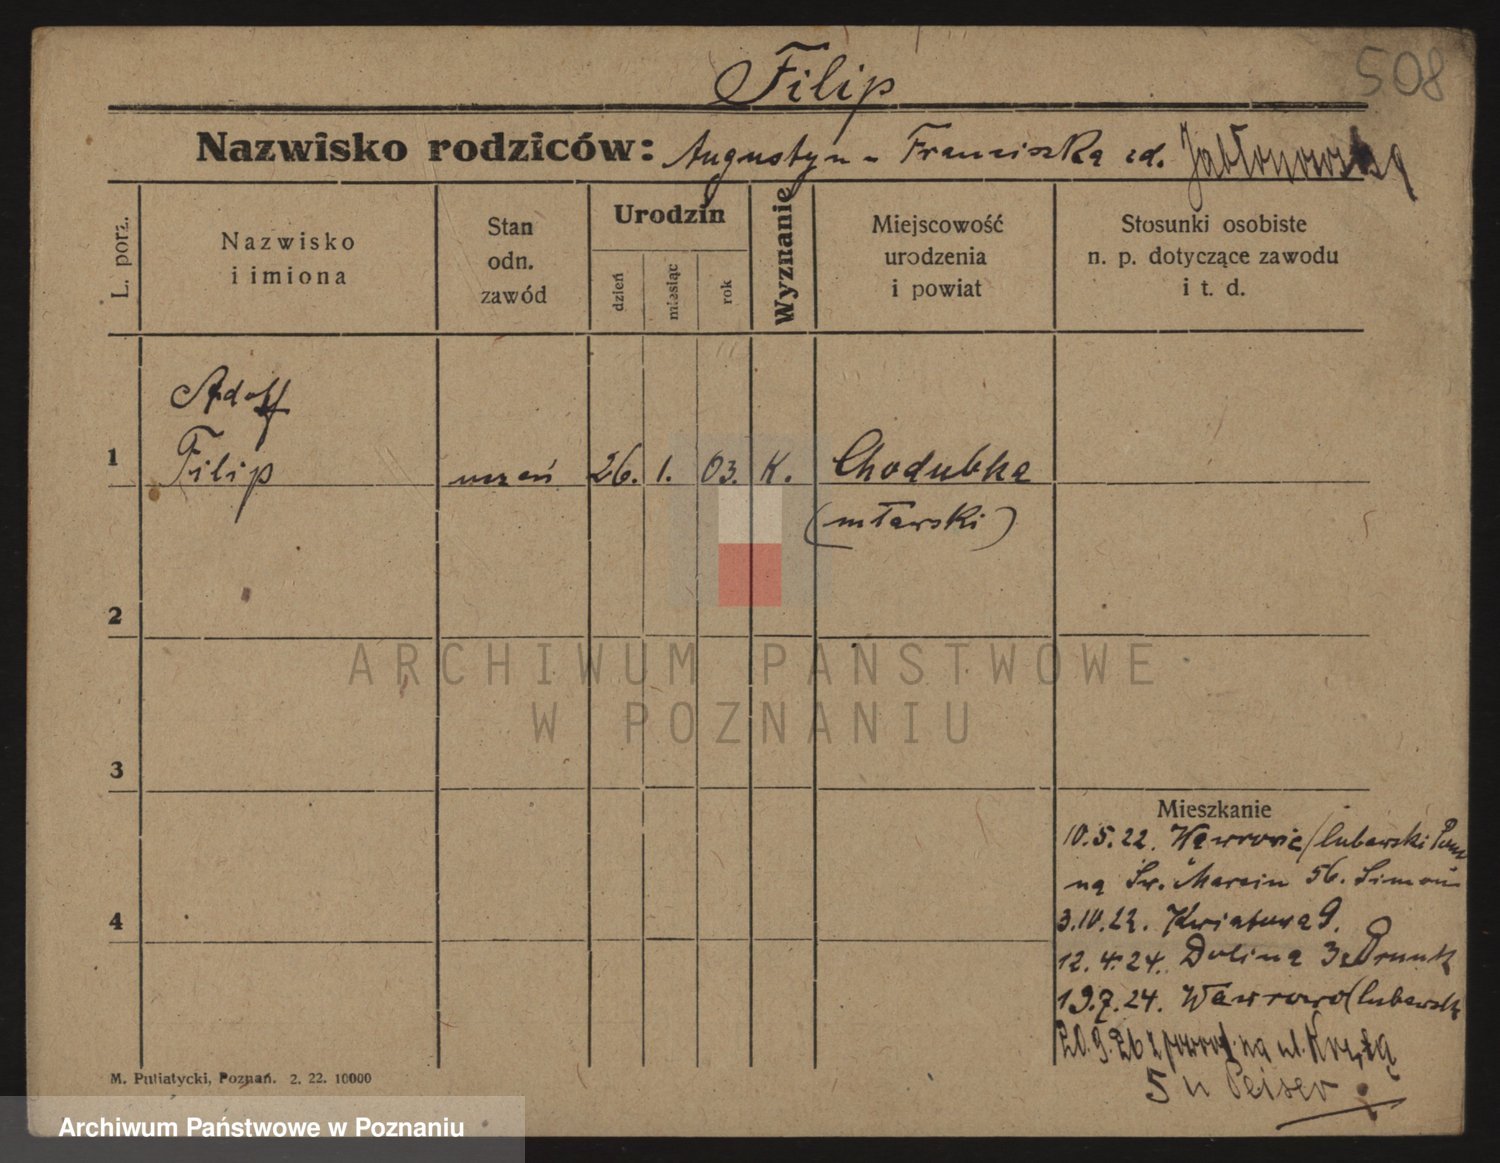 508
Filip
Nazwisko rodziców: Augustyn - Franciszka zd. Jabłonowska
L. porz.
Nazwisko
i imiona
Stan
odn.
zawód
Urodzin
dzień
miesiąc
rok
Wyznanie
Miejscowość
urodzenia
i powiat
Stosunki osobiste
n. p. dotyczące zawodu
i t. d.
Adolf
1 Filip uczeń 26. 1. 03. K. Chodubka
(mławski)
2
ARCHIWUM PAŃSTWOWE
W POZNANIU
3
Mieszkanie
10.5.22. (lubawski
na Św. Marcin 56. Simon
4
3.10.22. Kwiatowa 9.
12.4.24. Dolina
19.7.24. Wawrowo (lubawsk
20.9.26 z powrot. na ul.
5 u Peiser
M. Putiatycki, Poznań. 2. 22. 10000
Archiwum Państwowe w Poznaniu